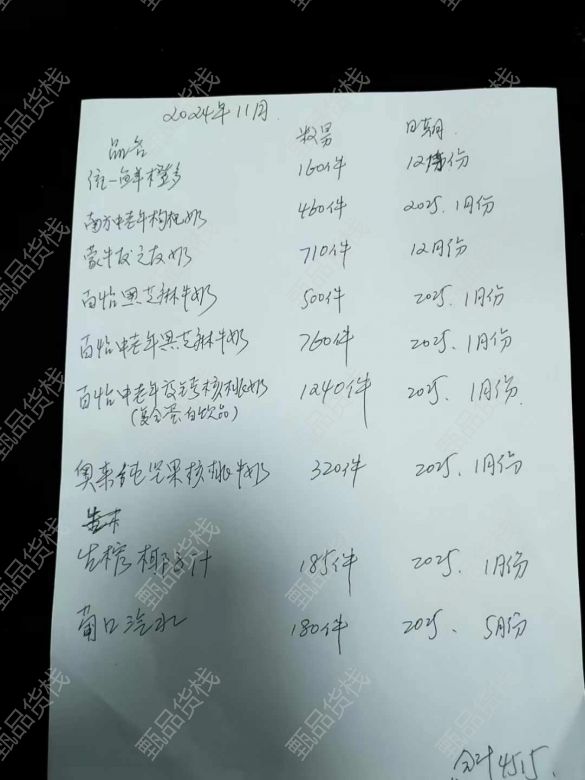 2024年11月.
品名 数另 日期.
统一鲜橙多 160件 12月份
南方中老年枸杞奶 460件 2025.1月份
蒙牛 奶 710件 12月份
百怡黑芝麻牛奶 500件 2025.1月份
百怡中老年黑芝麻牛奶 760件 2025.1月份
百怡中老年 核桃奶 1240件 2025.1月份.
(复合蛋白饮品)
奥莱纯坚果核桃牛奶 320件 2025.1月份
生榨椰子汁 185件 2025.1月份
汽水 180件 2025.5月份
合计4515.
甄品货栈